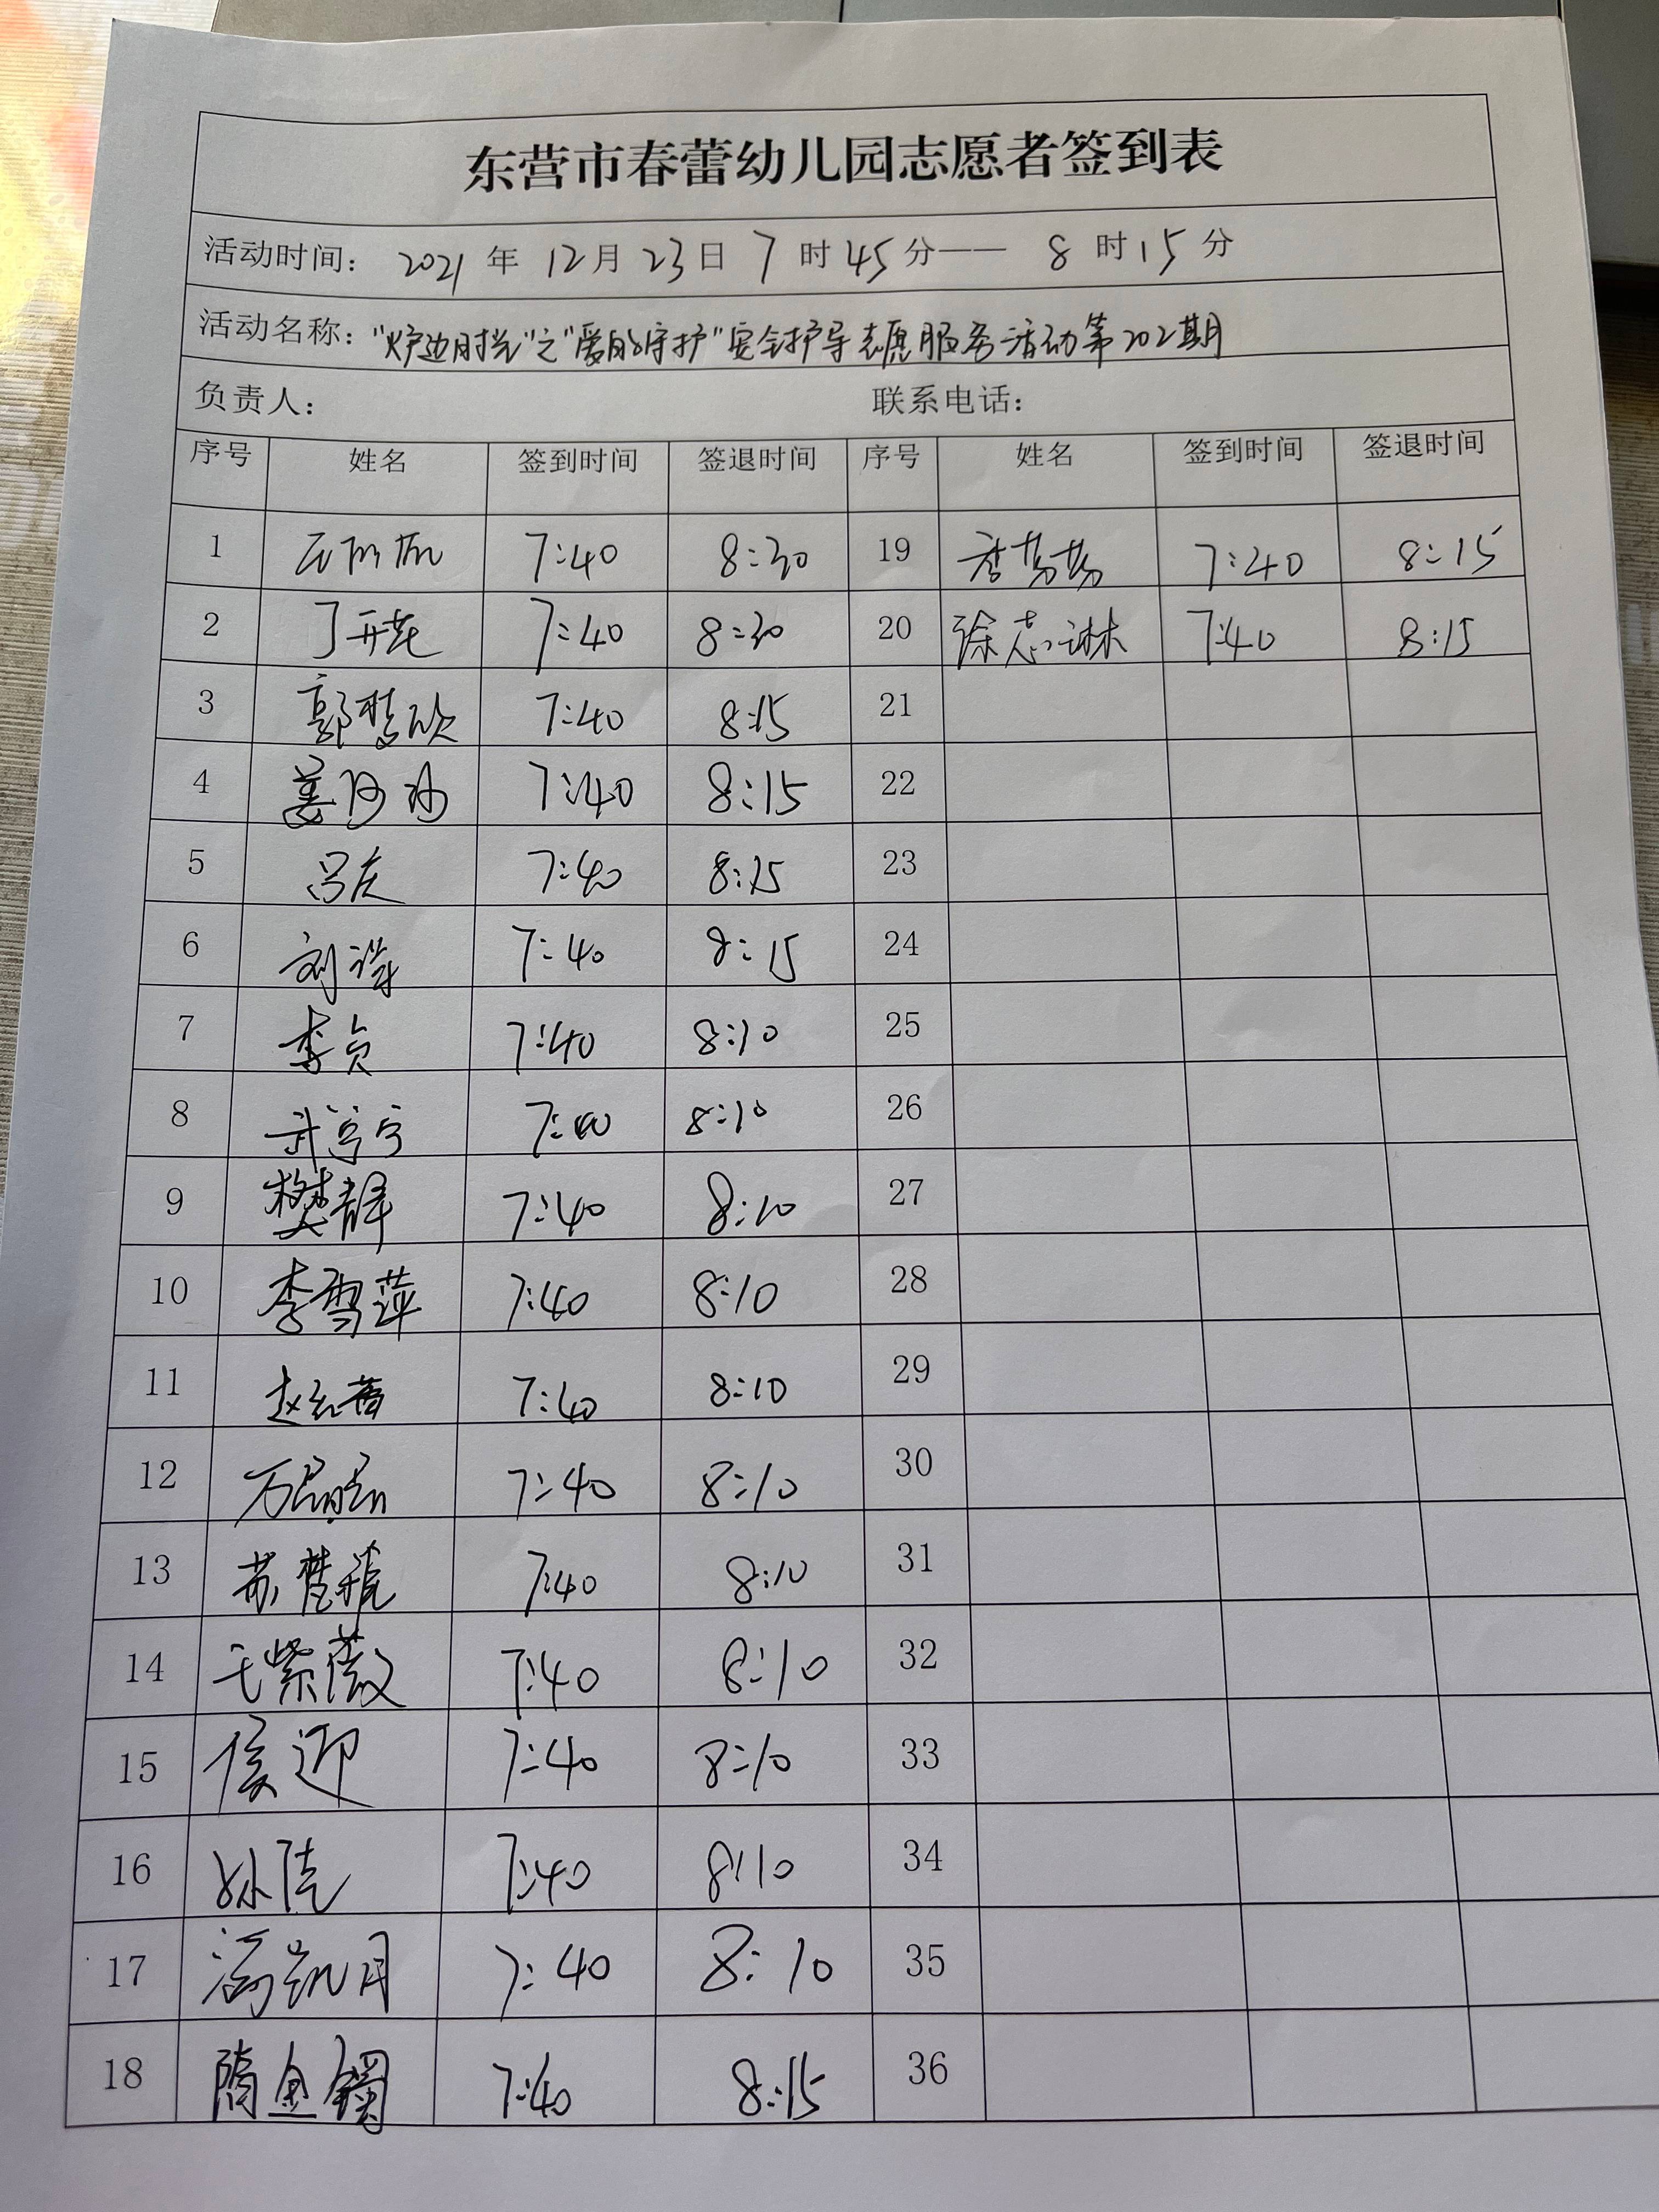 东营市春蕾幼儿园志愿者签到表
活动时间： 2021 年 12月 23日 7 时 45分—— 8 时15分
活动名称："炉边时光"之"爱的守护"安全护导志愿服务活动第202期
负责人： 联系电话：
序号 姓名 签到时间 签退时间 序号 姓名 签到时间 签退时间
1 7:40 8:30 19 李芳芳 7:40 8:15
2 丁开花 7:40 8:30 20 徐志琳 7:40 8:15
3 郭慧欣 7:40 8:15 21
4 姜 7:40 8:15 22
5 吕庆 7:40 8:15 23
6 刘 7:40 8:15 24
7 李贞 7:40 8:10 25
8 武宁宁 7:40 8:10 26
9 樊静 7:40 8:10 27
10 李雪萍 7:40 8:10 28
11 赵 7:40 8:10 29
12 万晶晶 7:40 8:10 30
13 苏楚 7:40 8:10 31
14 王紫薇 7:40 8:10 32
15 侯迎 7:40 8:10 33
16 孙 7:40 8:10 34
17 冯凯月 7:40 8:10 35
18 隋金镯 7:40 8:15 36